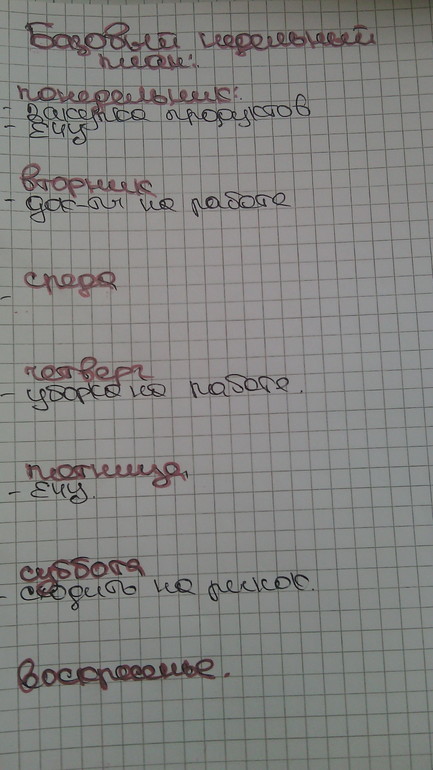 Базовый недельный
план:
понедельник:
- закупка продуктов
- ЕНУ
вторник
- док-ты на работе
среда
-
четверг
- уборка на работе.
пятница
- ЕНУ.
суббота
- сходить на рынок.
воскресенье.